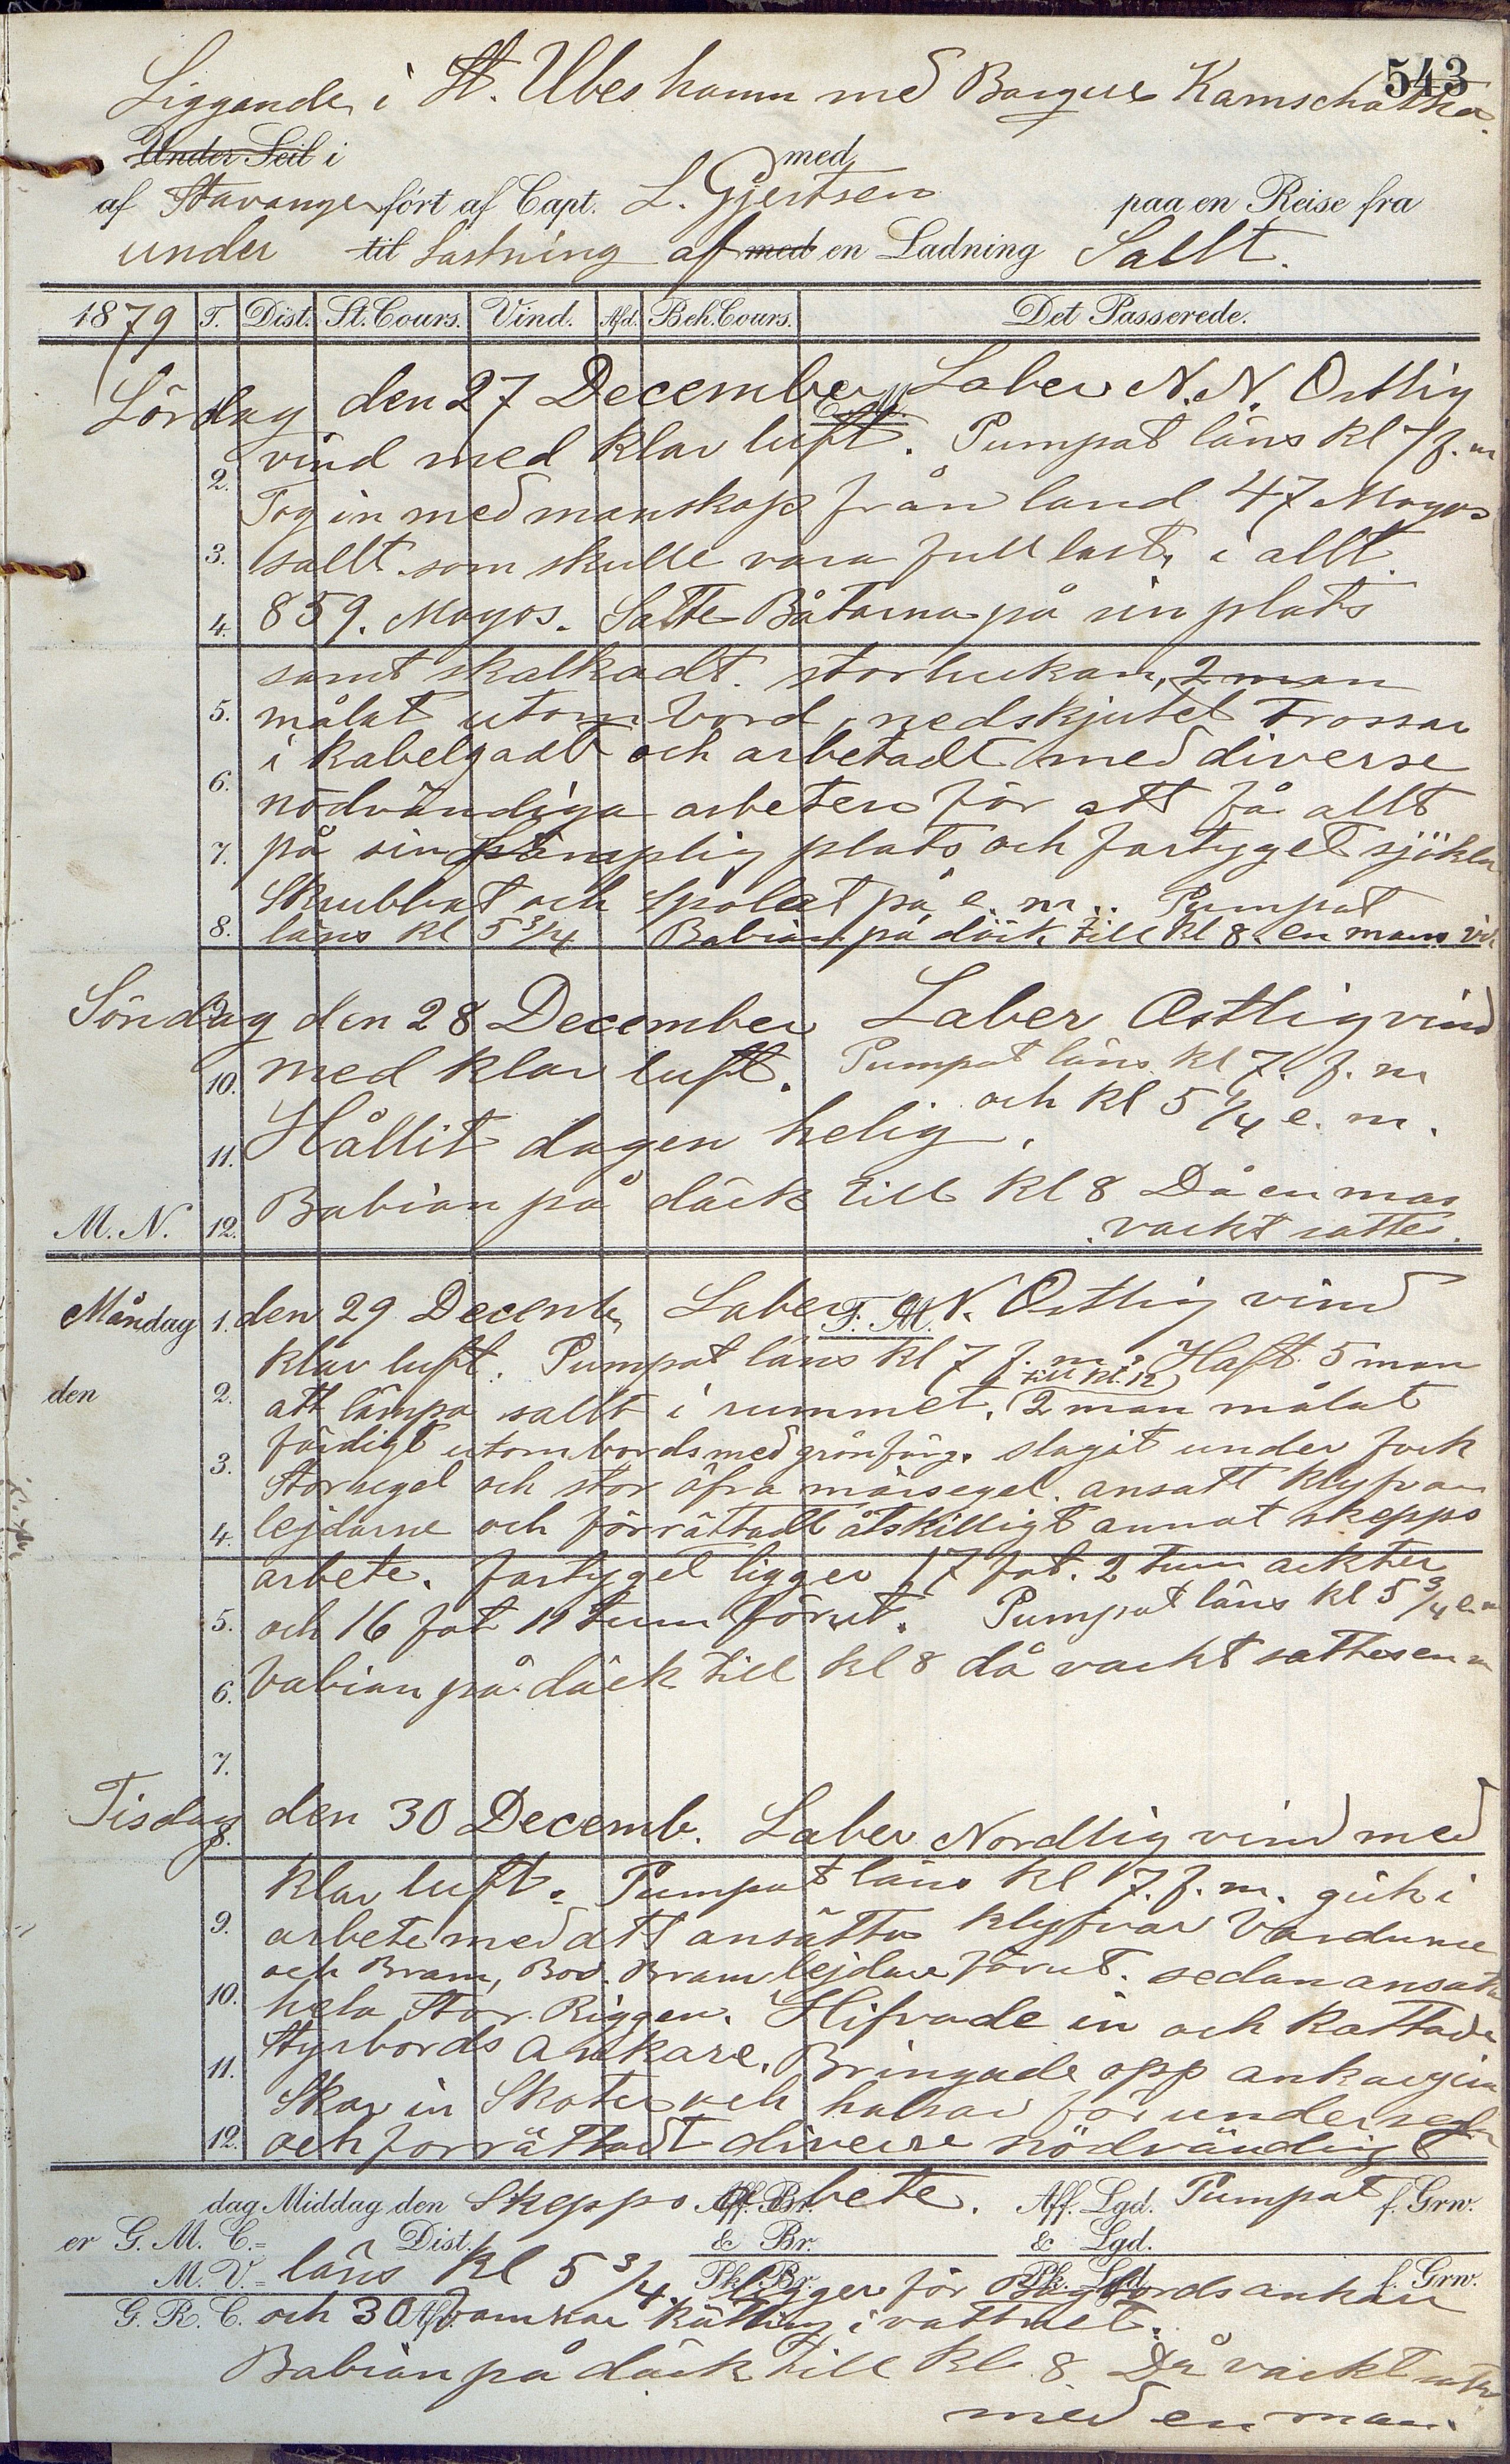 543
Liggande i St. Ubes hamn med Barque Kamschatka.
Under Seil i med
af Stavanger ført af Capt. L. Gjertsen paa en Reise fra
under til Lastning af med en Ladning Sallt.
1879 T. Dist. St. Cours. Vind. Afd. Beh. Cours. Det Passerede.
Lördag den 27 December Laber N.N. Ostlig
vind med klar luft. Pumpat läns kl 7 f.m
2. Tog in med manskap från land 47 Moyos
3. sallt som skulle vara full last, i allt
4. 859. Moyos. Satte Båtarna på sin plats
samt skalkadt storlukan, 2 man
5. målat utom bord, nedskjutet Trossar
i kabelgadt och arbetadt med diverse
6. nödvändiga arbeten för att få allt
7. på sin lämplig plats och fartyget sjöklar
Skrubbat och Spolat på e.m.. Pumpat
8. läns kl 5 3/4 Babian på däck till kl 8. en mans
Söndag den 28 December Laber Ostlig vind
10. med klar luft. Pumpat läns kl 7. f.m
och kl 5 1/4 e.m.
11. Hållit dagen helig.
M. N. 12. Babian på däck till kl 8 Då en mas
vackt satte.
Måndag 1. den 29 Decemb. Laber N. Ostlig vind
F. M.
klar luft. Pumpat läns kl 7 f.m. Haft 5 man
till kl. 12
den 2. att lämpa sallt i rummet. 2 man målat
färdigt utombords med grönfärg. slagit under fock
3. Storsegel och stor öfra märssegel. ansatt klyfvar
4. lejdarne och förrättadt åtskilligt annat skepps
arbete. fartyget ligger 17 fot. 2 tum ackter
5. och 16 fot 11 tum förut. Pumpat läns kl 5 3/4 e.m
6. babian på däck till kl 8 då vackt sattes en m
7.
Tisdag 8. den 30 Decemb. Laber Nordlig vind med
klar luft. Pumpat läns kl 7. f.m. gick i
9. arbete med att ansätta klyfvar Bardune
och Bram, Bov. Bram lejdare förut. sedan ansatt
10. hela Stor. Riggen. Hifvade in och Kattade
Styrbords Ankare. Bringade opp ankargin
11. Skar in Skoter och halsar för undersegln
12. och forrättadt diverse nödvändigt
dag Middag den Skepps arbete. Aff. Br. Aff. Lgd. Pumpat f. Grw.
er G. M. C.= Dist. & Br. & Lgd.
M. V.= läns kl 5 3/4. Pk. Br. ligger för Pk. Lgd. bords ankare f. Grw.
G. R. C. och 30 Afd. famnar kätting i vattnet.
Babian på däck till kl. 8 Då vackt
med en man.